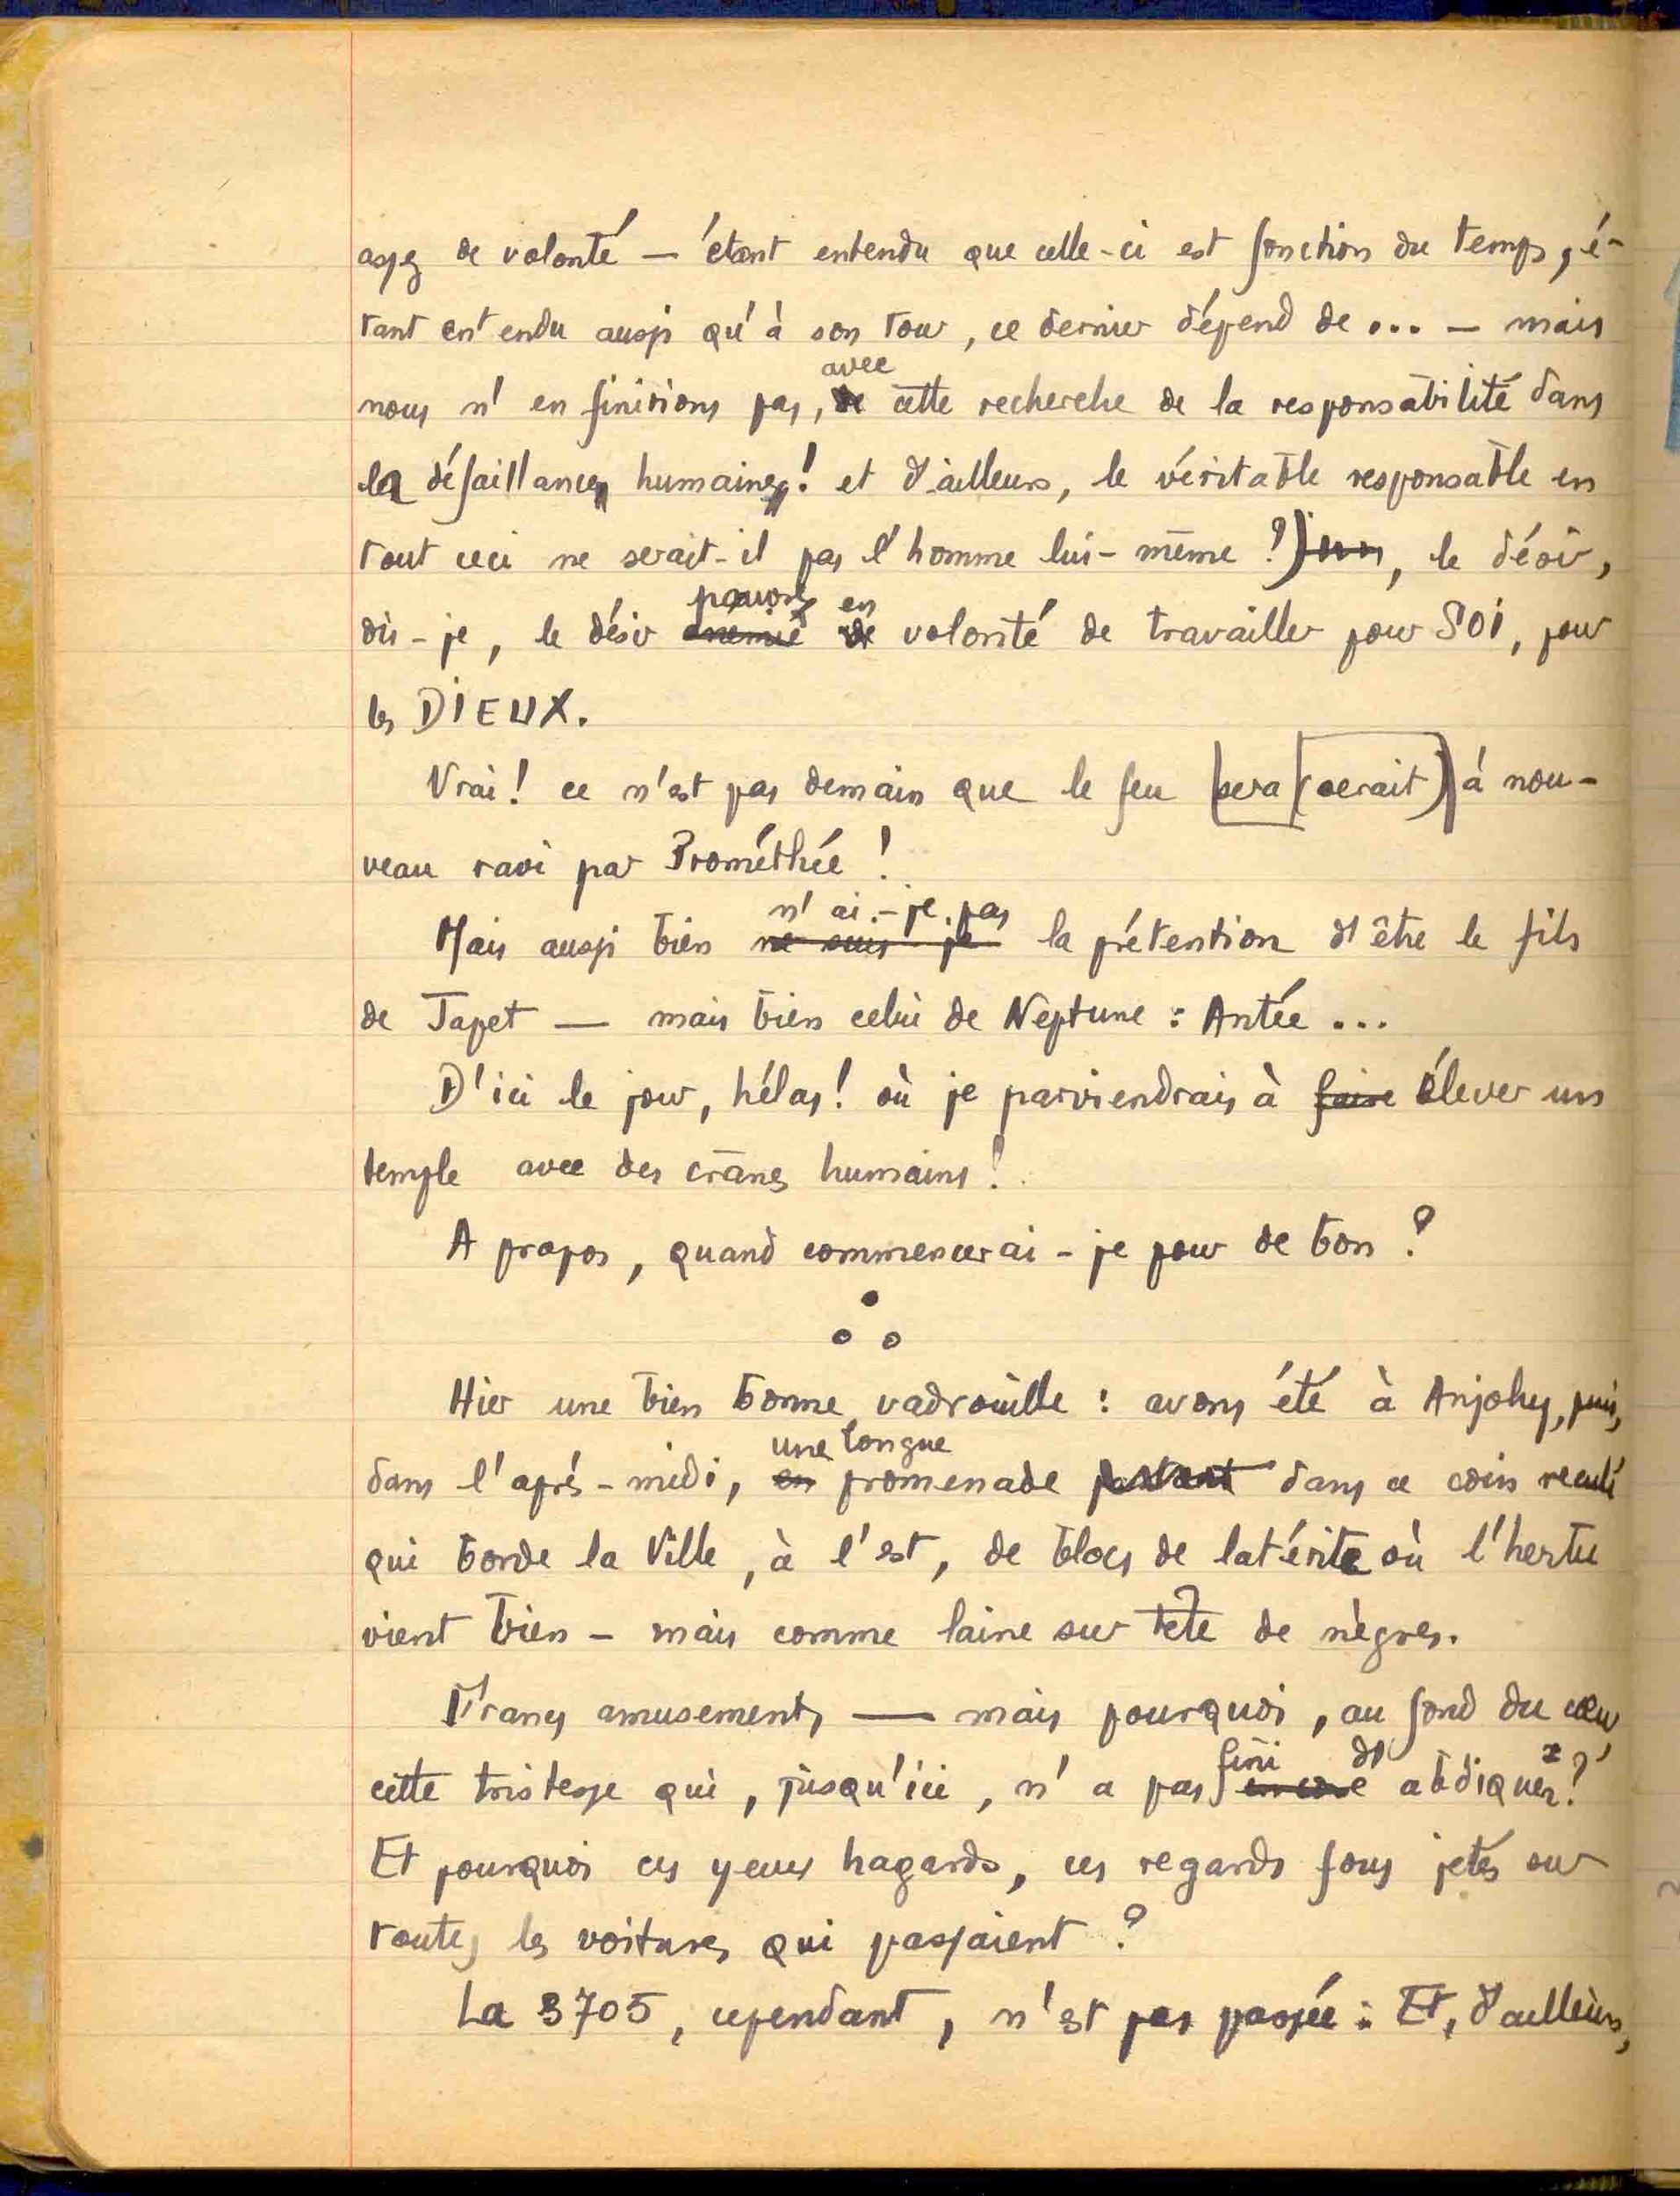 assez de volonté — étant entendu que celle-ci est fonction du temps, é-
tant entendu aussi qu'à son tour, ce dernier dépend de... — mais
avec
nous n'en finirions pas, de cette recherche de la responsabilité dans
la défaillance humaine! et d'ailleurs, le véritable responsable en
tout ceci ne serait-il pas l'homme lui-même?) , le désir,
en
dis-je, le désir de volonté de travailler pour SOI, pour
les DIEUX.
Vrai! ce n'est pas demain que le feu [sera (serait)] à nou-
veau ravi par Prométhée!
n'ai-je pas
Mais aussi bien ne suis-je la prétention d'être le fils
de Japet — mais bien celui de Neptune: Antée...
D'ici le jour, hélas! où je parviendrais à faire élever un
temple avec des crânes humains!
A propos, quand commencerai-je pour de bon?
Hier une bien bonne vadrouille: avons été à Anjohy, puis,
une longue
dans l'après-midi, en promenade dans ce coin reculé
qui borde la Ville, à l'est, de blocs de latérite où l'herbe
vient bien — mais comme laine sur tête de nègres.
Francs amusements — mais pourquoi, au fond du cœur,
fini d'
cette tristesse qui, jusqu'ici, n'a pas encore abdiquer?
Et pourquoi ces yeux hagards, ces regards fous jetés sur
toutes les voitures qui passaient?
La 3705, cependant, n'est pas passée: Et, d'ailleurs,